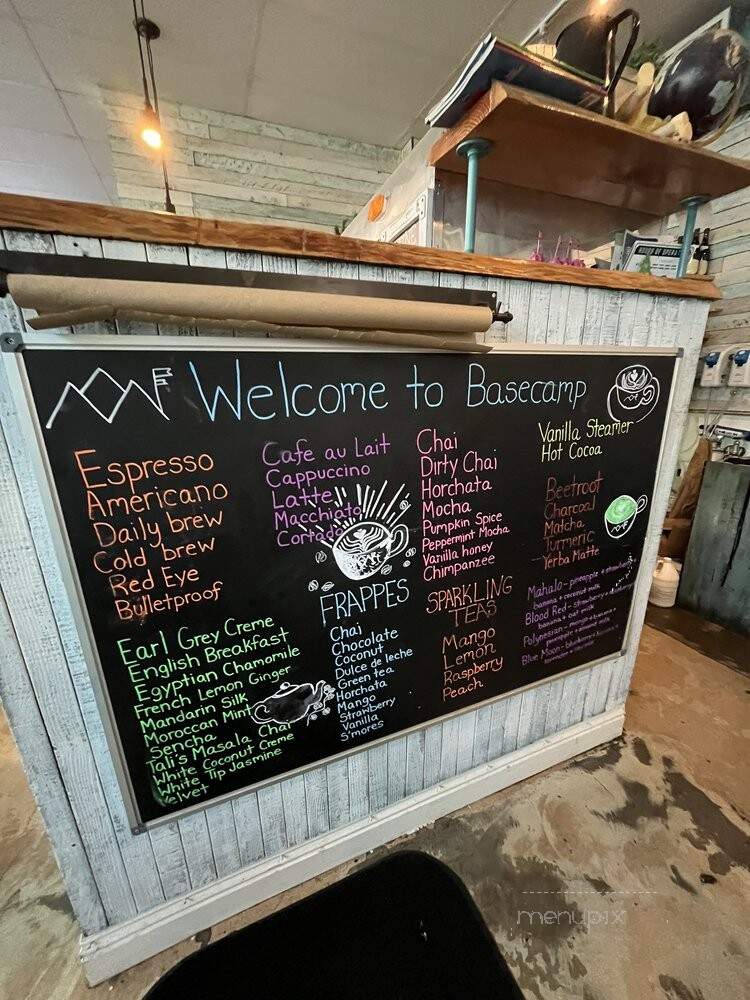 Welcome to Basecamp
Espresso
Americano
Daily brew
Cold brew
Red Eye
Bulletproof
Cafe au Lait
Cappuccino
Latte
Macchiato
Cortado
Chai
Dirty Chai
Horchata
Mocha
Pumpkin Spice
Peppermint Mocha
Vanilla honey
Chimpanzee
Vanilla Steamer
Hot Cocoa
Beetroot
Charcoal
Matcha
Turmeric
Yerba Matte
Earl Grey Creme
English Breakfast
Egyptian Chamomile
French Lemon Ginger
Mandarin Silk
Moroccan Mint
Sencha
Tali's Masala Chai
White Coconut Creme
White Tip Jasmine
Velvet
FRAPPES
Chai
Chocolate
Coconut
Dulce de leche
Green tea
Horchata
Mango
Strawberry
Vanilla
S'mores
SPARKLING
TEAS
Mango
Lemon
Raspberry
Peach
Mahalo - pineapple + strawberry
banana + coconut milk
Blood Red - strawberry +
banana + oat milk
Polynesian - mango + banana +
pineapple + almond milk
Blue Moon -
HOURS OF OPERATION
menupix